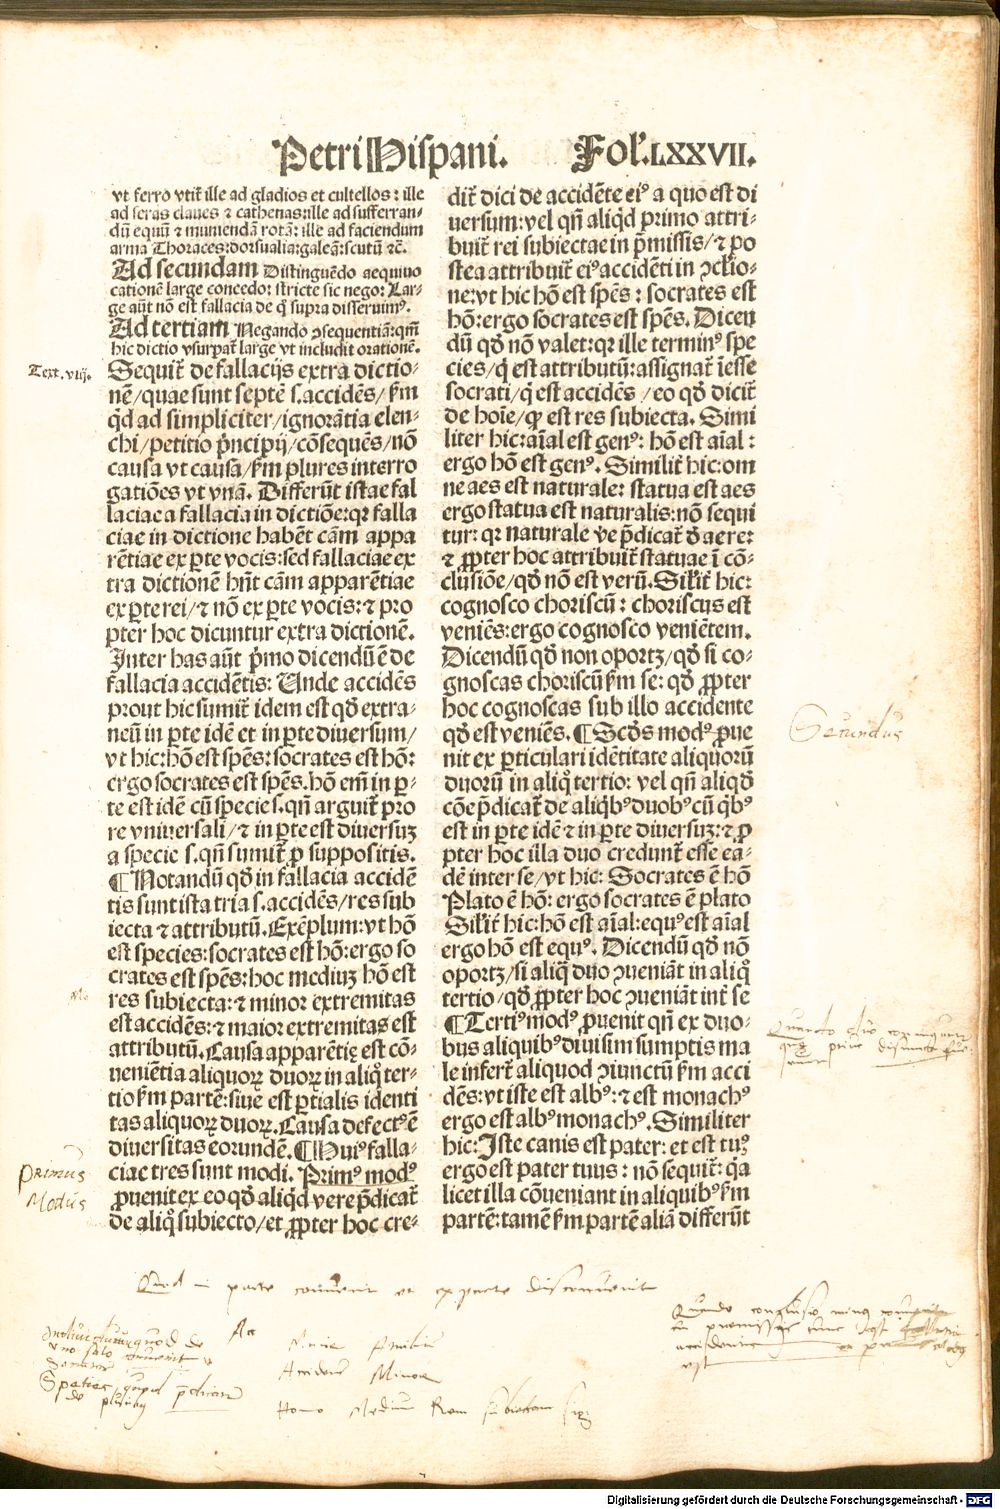 Petri Hispani. Fol'. LXXVII.
vt ferro vtit̃ ille ad gladios et cultellos: ille
ad seras claues ⁊ cathenas: ille ad sufferran-
dũ equũ ⁊ muniendã rotã: ille ad faciendum
arma Thoraces: dorsualia: galeã: scutũ ⁊c̃.
Ad secundam Distinguẽdo aequiuo
cationẽ large concedo: stricte sic nego: Lar-
ge aũt nõ est fallacia de q̃ supra disseruimꝰ.
Ad tertiam Negando ↄsequentiã: qm̃
hic dictio vsurpat̃ large vt includit orationẽ.
Text. viij.
Sequit̃ de fallacijs extra dictio-
nẽ/quae sunt septẽ s. accidẽs/ ẜm
qd̃ ad simpliciter/ignorãtia elen-
chi/petitio pñcipij/cõsequẽs/nõ
causa vt causa/ẜm plures interro
gatiões vt vnã. Differũt istae fal
laciae a fallacia in dictiõe: qꝛ falla
ciae in dictione habẽt cãm appa
rẽtiae ex ꝑte vocis: sed fallaciae ex
tra dictionẽ hñt cãm apparẽtiae
ex ꝑte rei/⁊ nõ ex ꝑte vocis: ⁊ pro
pter hoc dicuntur extra dictionẽ.
Inter has aũt p̃mo dicendũ ẽ de
fallacia accidẽtis: Unde accidẽs
prout hic sumit̃ idem est qd̃ extra-
neũ in ꝑte idẽ et in ꝑte diuersum/
vt hic: hõ est spẽs: socrates est hõ:
ergo socrates est spẽs. hõ em̃ in ꝑ-
te est idẽ cũ specie s. qñ arguit̃ pro
re vniuersali/⁊ in ꝑte est diuersuꝫ
a specie s. qñ sumit̃ ꝓ suppositis.
¶Notandũ qd̃ in fallacia accidẽ
tis sunt ista tria s. accidẽs/res sub
iecta ⁊ attributũ. Exẽplum: vt hõ
est species: socrates est hõ: ergo so
crates est spẽs: hoc mediuꝫ hõ est
res subiecta: ⁊ minor extremitas
est accidẽs: ⁊ maior extremitas est
attributũ. Causa apparẽtię est cõ-
uenientia aliquoꝝ duoꝝ in aliq̃ ter-
tio ẜm partẽ: siue est ꝑtialis identi
tas aliquoꝝ duoꝝ. Causa defectꝰ ẽ
diuersitas eorundẽ. ¶Huiꝰ falla-
ciae tres sunt modi. Primꝰ modꝰ
ꝓuenit ex eo qd̃ aliqd̃ vere p̃dicat̃
de aliq̃ subiecto/et ꝓpter hoc cre-
Primus
Modus
dit̃ dici de accidẽte eiꝰ a quo est di
uersum: vel qñ aliqd̃ primo attri-
buit̃ rei subiectae in p̃missis/⁊ po
stea attribuit̃ eiꝰ accidẽti in ↄclusio-
ne: vt hic hõ est spẽs: socrates est
hõ: ergo socrates est spẽs. Dicen
dũ qd̃ nõ valet: qꝛ ille terminꝰ spe
cies/q̃ est attributũ: assignat̃ iesse
socrati/q̃ est accidẽs /eo qd̃ dicit̃
de hoĩe/q̃ est res subiecta. Simi
liter hic: aĩal est genꝰ: hõ est aĩal:
ergo hõ est genꝰ. Similit̃ hic: om
ne aes est naturale: statua est aes
ergo statua est naturalis: nõ sequi
tur: qꝛ naturale ṽe p̃dicat̃ d̃ aere:
⁊ ꝓpter hoc attribuit̃ statuae ĩ cõ-
clusiõe/qd̃ nõ est verũ. Silit̃ hic:
cognosco choriscũ: choriscus est
veniẽs: ergo cognosco veniẽtem.
Dicendũ qd̃ non oportꝫ/qd̃ si co-
gnoscas choriscũ ẜm se: qd̃ ꝓpter
hoc cognoscas sub illo accidente
qd̃ est veniẽs. ¶Scd̃s modꝰ ꝓue
nit ex ꝑticulari idẽtitate aliquorũ
duorũ in aliq̃ tertio: vel qñ aliqd̃
cõe p̃dicat̃ de aliqbꝰ duobꝰ cũ qbꝰ
est in ꝑte idẽ ⁊ in ꝑte diuersuꝫ: ⁊ ꝓ
pter hoc illa duo credunt̃ esse ea-
dẽ inter se/vt hic: Socrates ẽ hõ
Plato ẽ hõ: ergo socrates ẽ plato
Silit̃ hic: hõ est aĩal: equꝰ est aĩal
ergo hõ est equꝰ. Dicendũ qd̃ nõ
oportꝫ/si aliq̃ duo ↄueniãt in aliq̃
tertio/qd̃ ꝓpter hoc ↄueniãt int̃ se
¶Tertiꝰ modꝰ ꝓuenit qñ ex duo-
bus aliquibꝰ diuisim sumptis ma
le infert̃ aliquod ↄiunctũ ẜm acci
dẽs: vt iste est albꝰ: ⁊ est monachꝰ
ergo est albꝰ monachꝰ. Similiter
hic: Iste canis est pater: et est tuꝰ
ergo est pater tuus: nõ sequit̃: q̃a
licet illa cõueniant in aliquibꝰ ẜm
partẽ: tamẽ ẜm partẽ aliã differũt
Secundus
Quod in parte conuenit et ex parte disconuenit
Accidens Minor
Homo Medium Rem subiectam
Digitalisierung gefördert durch die Deutsche Forschungsgemeinschaft - DFG